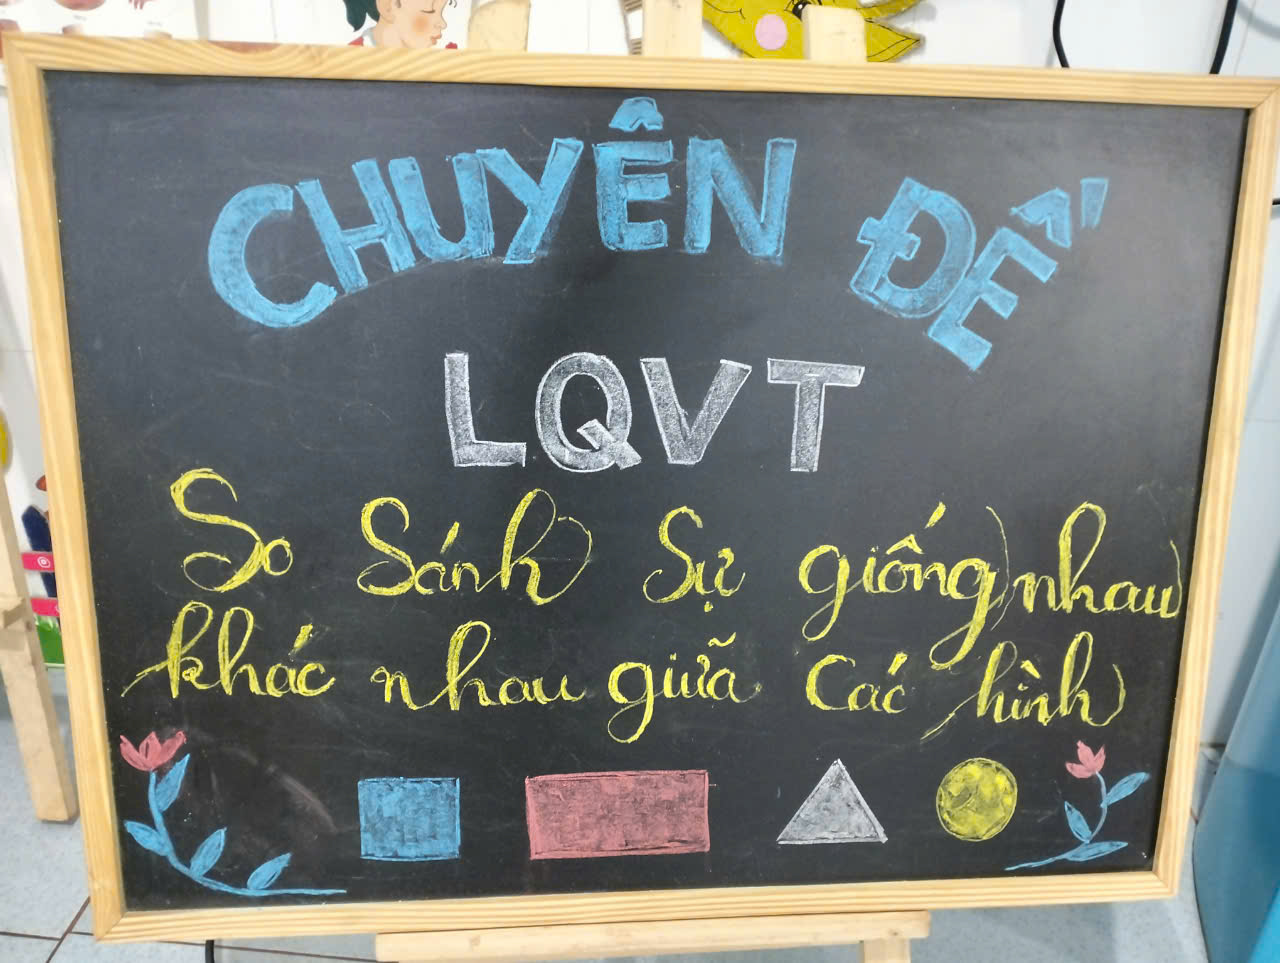 CHUYÊN ĐỀ
LQVT
So Sánh Sự giống nhau
khác nhau giữa Các hình